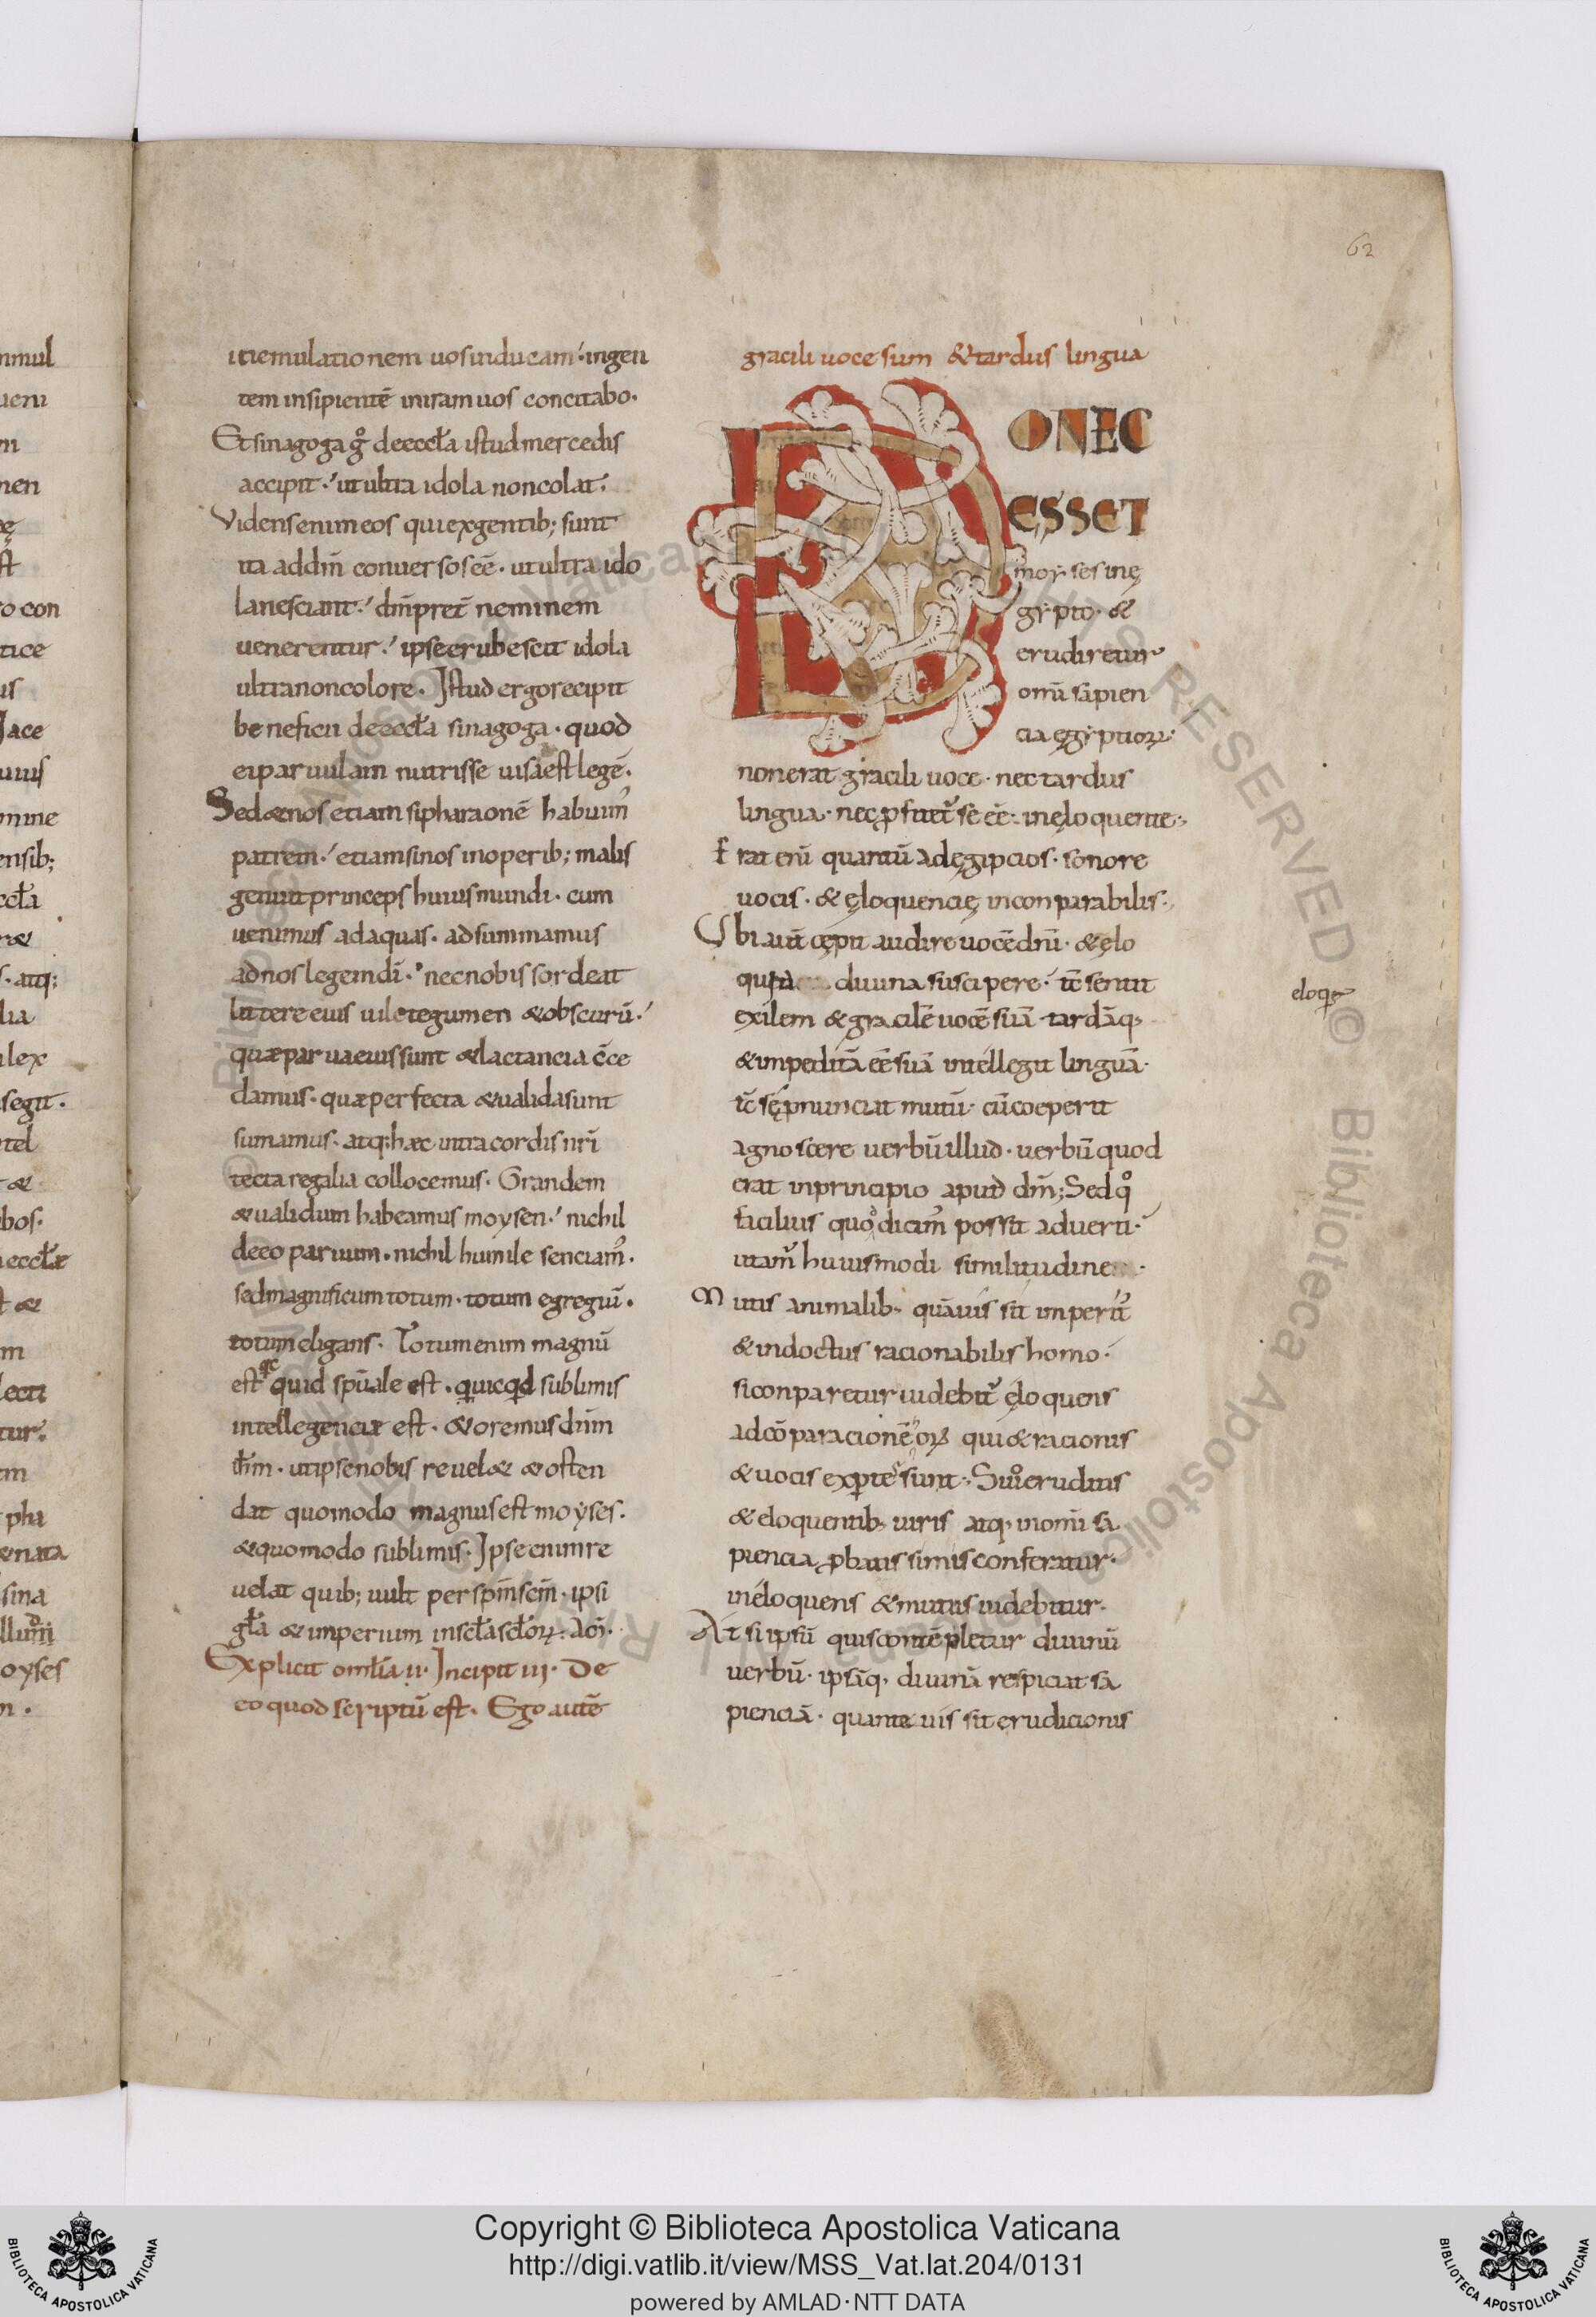 62
in emulationem uos inducam·́ in gen
tem insipientē in iram uos concitabo·
Et sinagoga gͦ de ecctā istud mercedis
accipit·́ ut ultra idola non colat·
Videns enim eos qui ex gentib; sunt
ita ad dm̄ conuersos eē· ut ultra ido
la nesciant·́ dm̄ pret̄ neminem
uenerentur·́ ipse erubescit idola
ultra non colore· Istud ergo recipit
beneficii de ecctā sinagoga· quod
ei paruulam nutrisse uisa est legē·
Sed & nos etiam si pharaonē habuim᾿
patrem·́ etiam si nos in operib; malis
genuit princeps huius mundi· cum
uenimus ad aquas· adsummamus
ad nos legem dī·᾿ nec nobis sordeat
littere eius uile tegumen & obscurū·́
quæ parua eius sunt & lactancia c̄ce
damus· quæ perfecta & ualida sunt
sumamus· atq: hæc intra cordis nrī
tecta regalia collocemus· Grandem
& ualidum habeamus moysen·́ nichil
de eo paruum· nichil humile senciam᾿·
sed magnificum totum· totum egregiū·
totum eligans· Totum enim magnū
est quicquid spūale est· quicqd sublimis
intellegenciæ est· & oremus dnm
ihm· ut ipse nobis reuel& & osten
dat quomodo magnus est moyses·
& quomodo sublimis· Ipse enim re
uelat quib; uult per spm̄ scm̄· ipsi
gła & imperium in scła scłoꝝ· am̄·
Explicit omlīa ii· Incipit iii· De
eo quod scriptū est· Ego autē
gracili uoce sum & tardus lingua
DONEC
ESSET
moyses in ę
gypto· &
erudiretur
omī sapien
cia ęgyptioꝝ·
non erat gracili uoce· nec tardus
lingua· nec ꝓfitet᾿ se eē· inęloquente·
Erat enī quantū ad ęgipcios· sonore
uocis· & ęloquencię inconparabilis·
Vbi autē cępit audire uocē dnī· & ęlo
quia diuina suscipere·́ tc̄ sentit
eloqꝫ
exilem & gracilē uocē suā tardāq;
& impeditā eē suā intellegit linguā·
tc̄ sę ꝓnunciat mutū· cū coeperit
agnoscere uerbū illud· uerbū quod
erat in principio apud dm̄; Sed qͦ
facilius quoͩ dicim᾿ possit aduerti·́
utam᾿ huiuscemodi similitudine·
Mutis animalib; quāuis sit imperit᾿
& indoctus racionabilis homo·
si conparetur uidebit᾿ ęloquens
ad cōparacionē eoꝝ qui & racionis
& uocis expertes sunt·; Si uͦ eruditis
& eloquentib; uiris atq; in omī sa
piencia ꝓbatissimis conferatur·
ineloquens & mutus uidebitur·
At si ipsū quis contēpletur diuinū
uerbū· ipsāq; diuinā respiciat sa
pienciā· quanteuis sit erudicionis
Copyright © Biblioteca Apostolica Vaticana
http://digi.vatlib.it/view/MSS_Vat.lat.204/0131
powered by AMLAD·NTT DATA
BIBLIOTECA APOSTOLICA VATICANA
BIBLIOTECA APOSTOLICA VATICANA